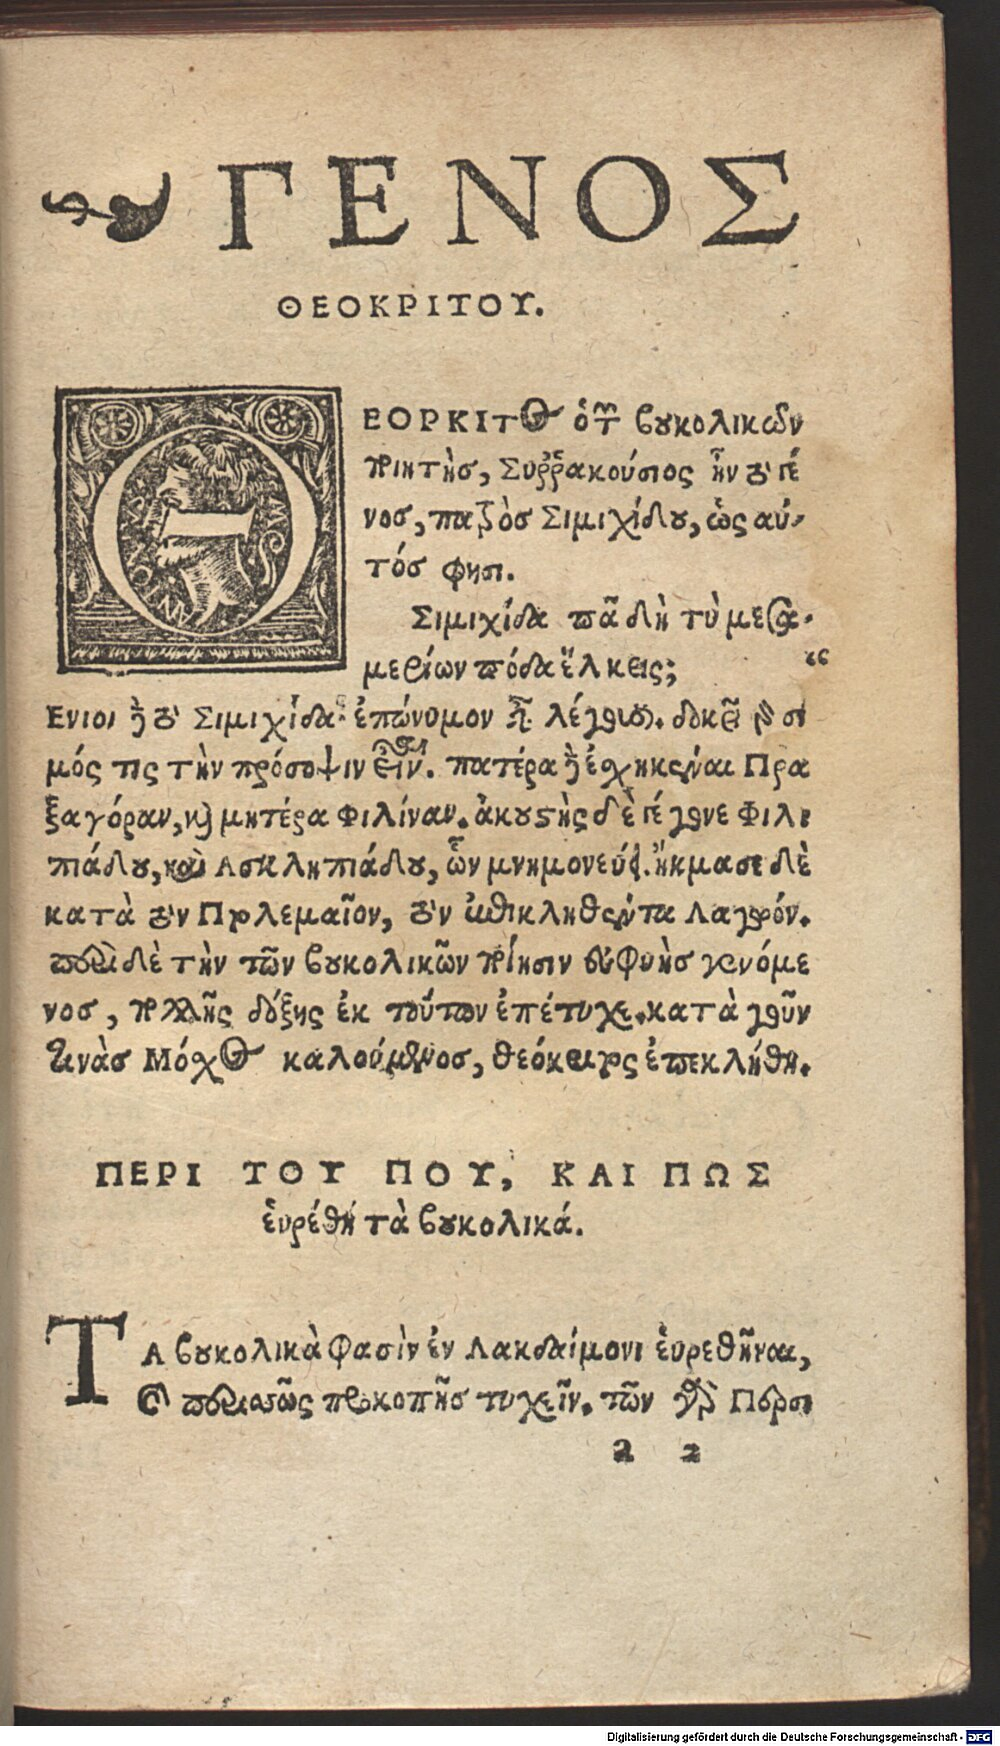 ΓΕΝΟΣ
ΘΕΟΚΡΙΤΟΥ.
ΘΕΟΡΚΙΤος ὁ τῶν βουκολικῶν
ποιητὴς, Συῤῥακούσιος ἦν τὸ γέ
νος, πατρὸς Σιμιχίδου, ὡς αὐ-
τός φησι.
Σιμιχίδα πᾶ δὴ τὺ μεσα-
μερίων πόδα ἕλκεις; “
Ενιοι δὲ τὸ Σιμιχίδα ἐπώνυμον εἶναι λέγουσι. δοκεῖ γὰρ σι
μός τις τὴν πρόσοψιν εἶναι. πατέρα δὲ ἐσχηκέναι Πρα
ξαγόραν, καὶ μητέρα Φιλίναν. ἀκουστὴς δὲ γέγονε Φιλι
πάδου, καὶ Ασκληπιάδου, ὧν μνημονεύει. ἤκμασε δὲ
κατὰ τὸν Πτολεμαῖον, τὸν ἐπικληθέντα Λαγωόν.
περὶ δὲ τὴν τῶν βουκολικῶν ποίησιν εὐφυὴς γενόμε
νος, πολλῆς δόξης ἐκ τούτου ἐπέτυχε. κατὰ γοῦν
τινὰς Μόσχος καλούμενος, θεόκριτος ἐπεκλήθη.
ΠΕΡΙ ΤΟΥ ΠΟΥ, ΚΑΙ ΠΩΣ
εὑρέθη τὰ βουκολικά.
ΤΑ βουκολικὰ φασὶν ἐν Λακεδαίμονι εὑρεθῆναι,
καὶ περισσῶς προκοπῆς τυχεῖν. τῶν γὰρ Περσι
a 2
Digitalisierung gefördert durch die Deutsche Forschungsgemeinschaft - DFG